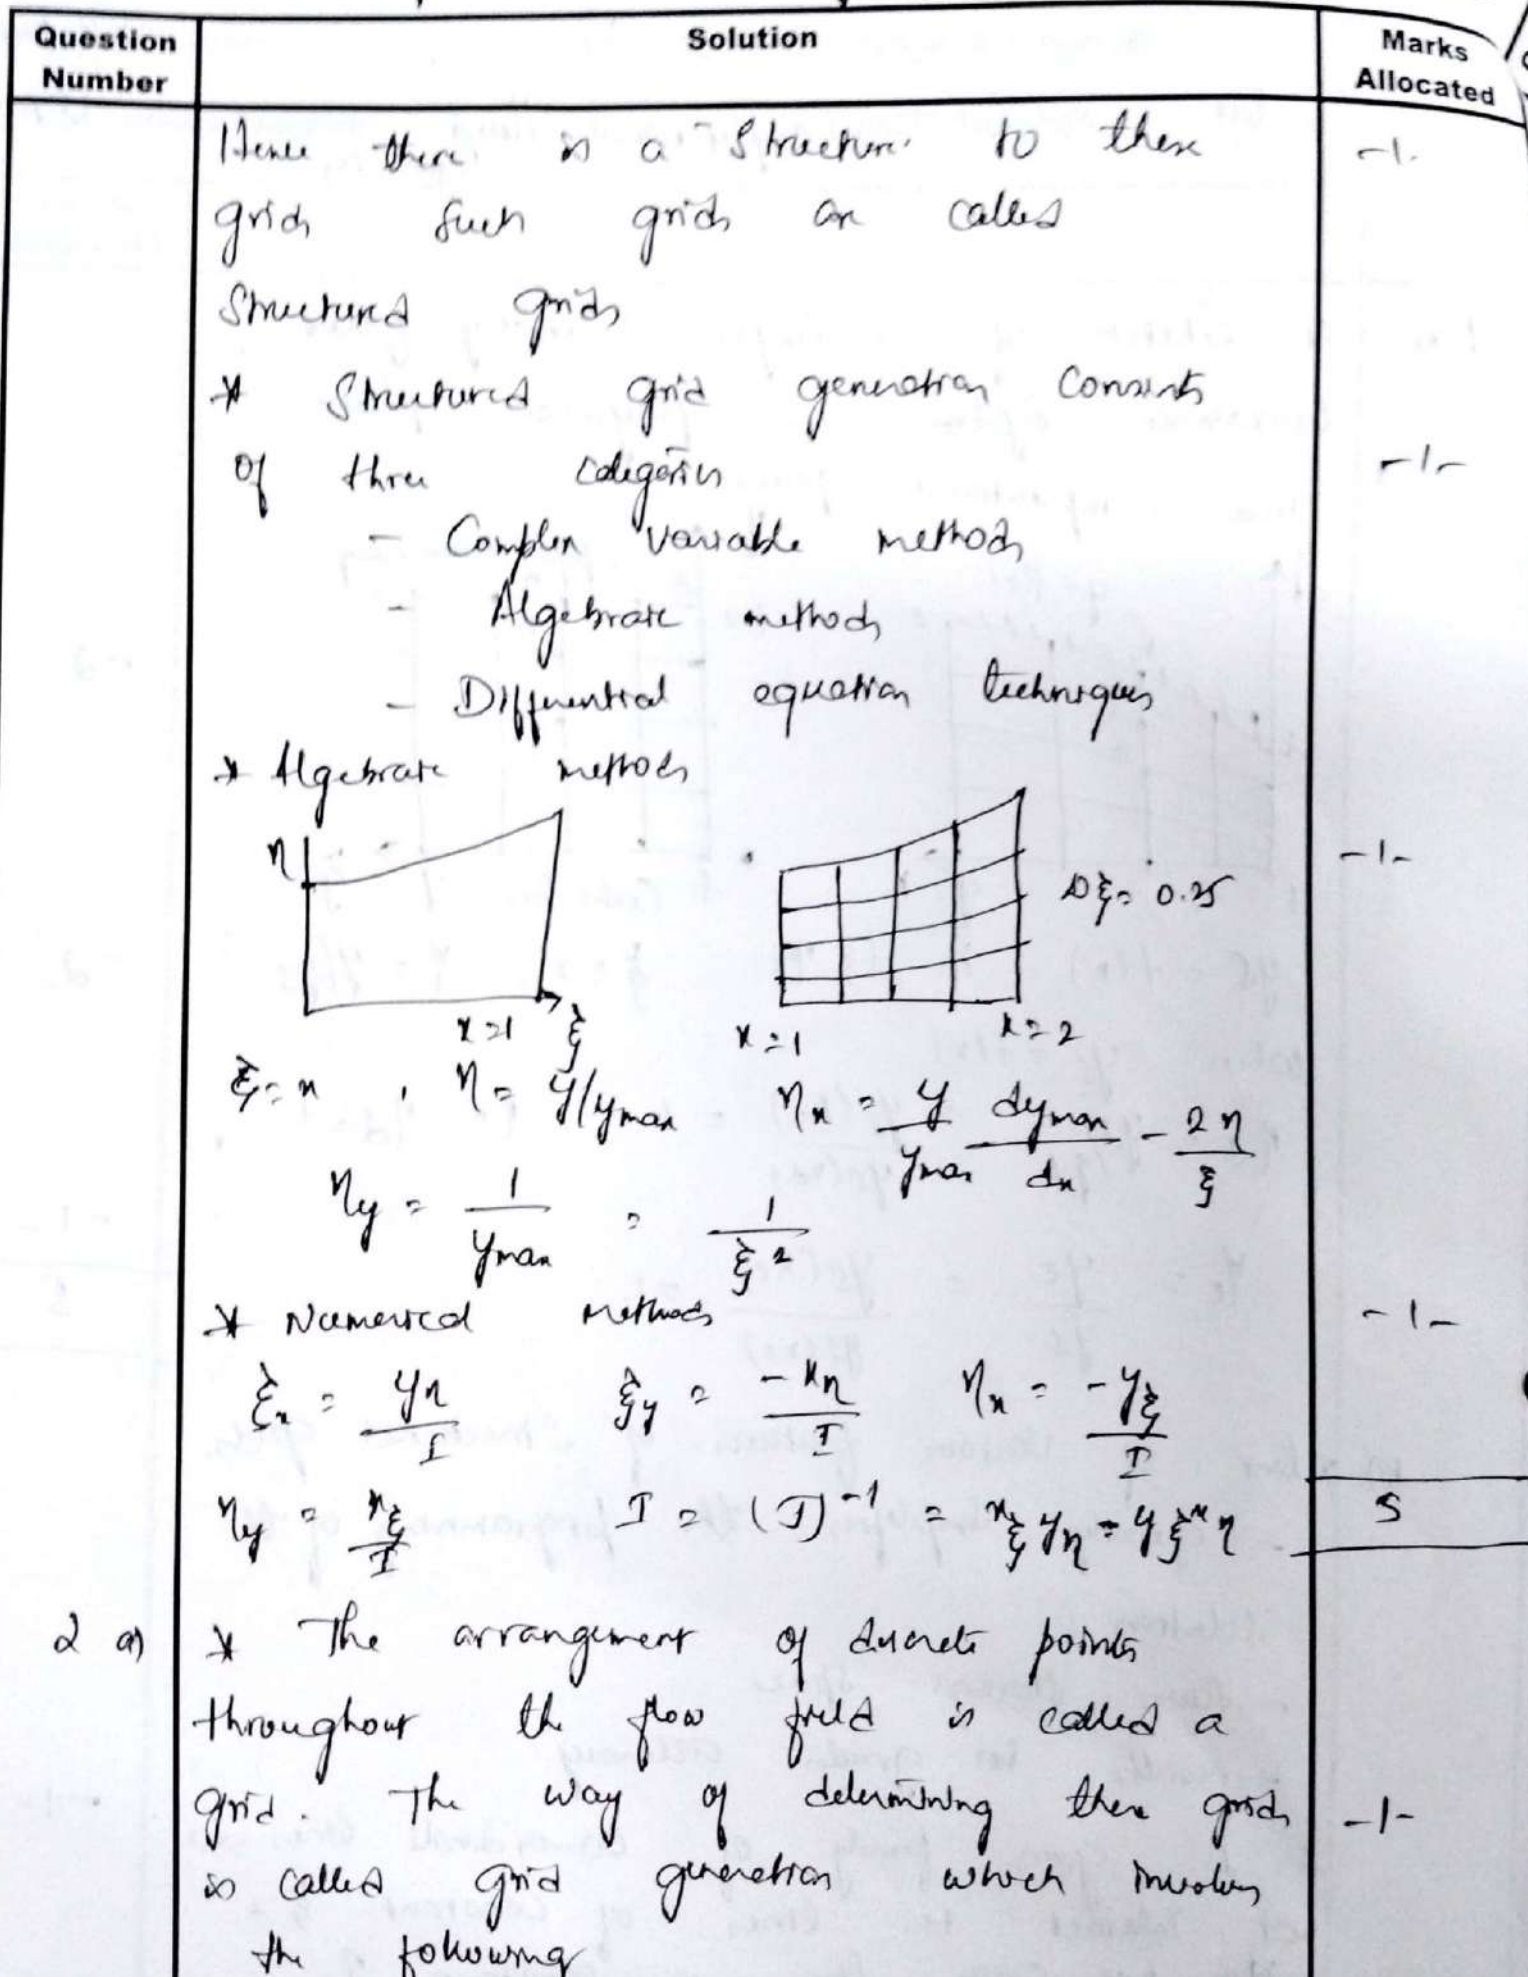 Question Number
Solution
Marks Allocated
Hence there is a structure to these -1-
grids such grids are called
Structured grids
* Structured grid generation consists
of three categories -1-
- Complex variable methods
- Algebraic methods
- Differential equation techniques
* Algebraic methods
η
x=1 ξ
x=1 x=2
Δξ = 0.25 -1-
ξ = x , η = y/ymax ηx = y/ymax dymax/dx - 2η/ξ
ηy = 1/ymax = 1/ξ²
* Numerical methods -1-
ξx = yη/I ξy = -xη/I ηx = -yξ/I
ηy = xξ/I I = (J)⁻¹ = xξ yη - yξ xη 5
2 a) * The arrangement of discrete points
throughout the flow field is called a
grid. The way of determining these grids -1-
is called grid generation which involves
the following